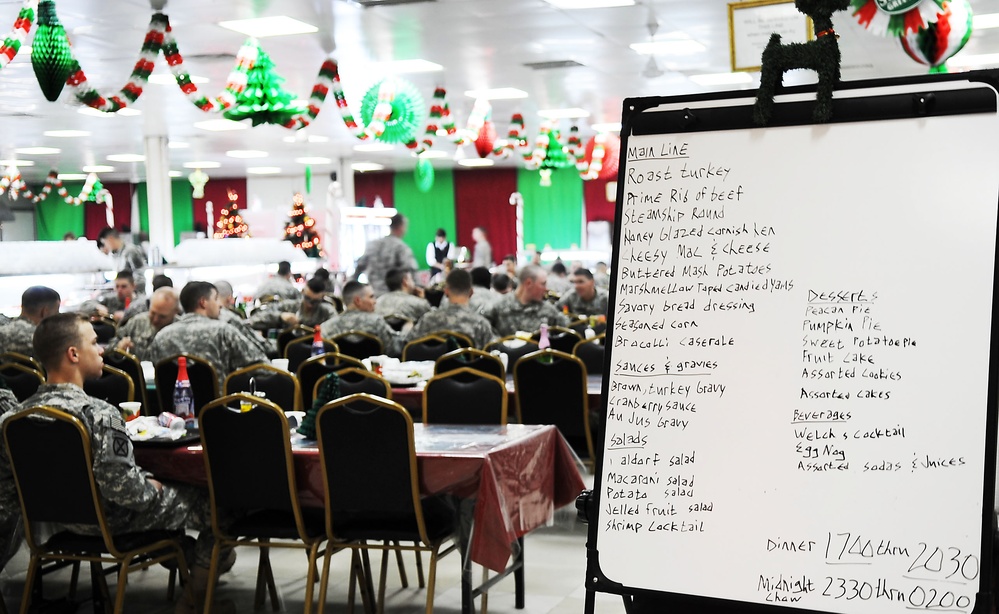 Main Line
Roast turkey
Prime Rib of beef
Steamship Round
Honey Glazed cornish hen
Cheesy Mac & cheese
Buttered Mash Potatoes
Marshmellow Taped candied yams
Savory bread dressing
Seasoned corn
Brocolli caserole
Sauces & gravies
Brown, turkey gravy
Cranberry sauce
Au Jus Gravy
Salads
aldorf salad
Macaroni salad
Potato salad
Jelled fruit salad
Shrimp Cocktail
Desserts
Peacan Pie
Pumpkin Pie
Sweet Potatoe Pie
Fruit Cake
Assorted Cookies
Assorted Cakes
Beverages
Welch s Cocktail
Egg Nog
Assorted sodas & Juices
Dinner 1700 thru 2030
Midnight 2330 thru 0200
Chow